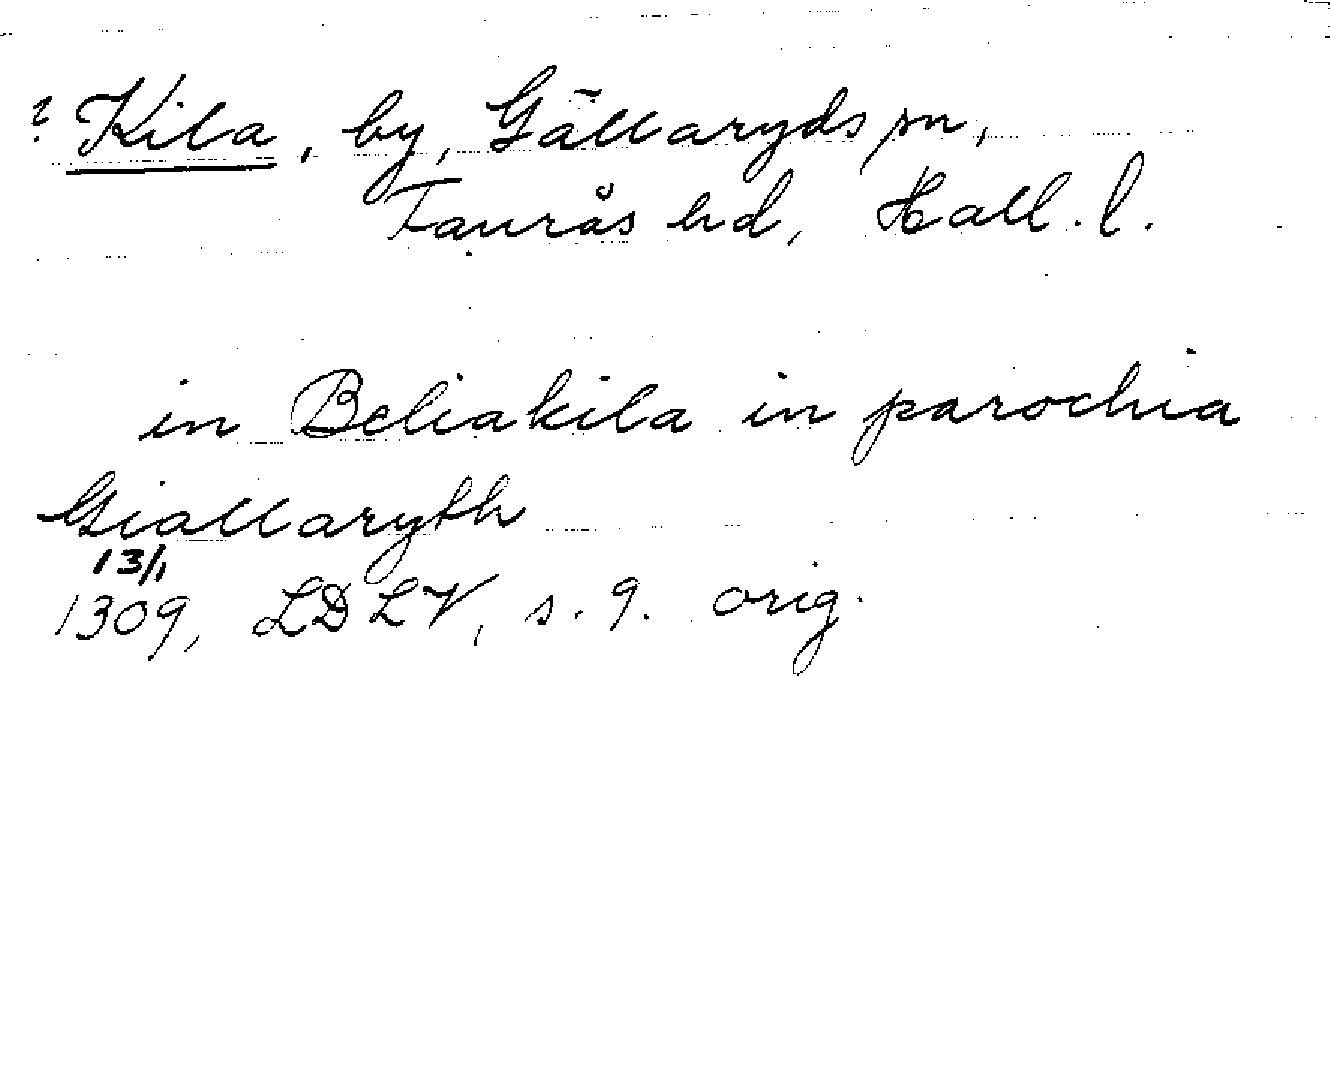 ? Kila, by, Gällaryds sn,
Faurås hd, Hall. l.
in Beliakila in parochia
Giallaryth
13/1
1309, LDLV, s. 9. orig.